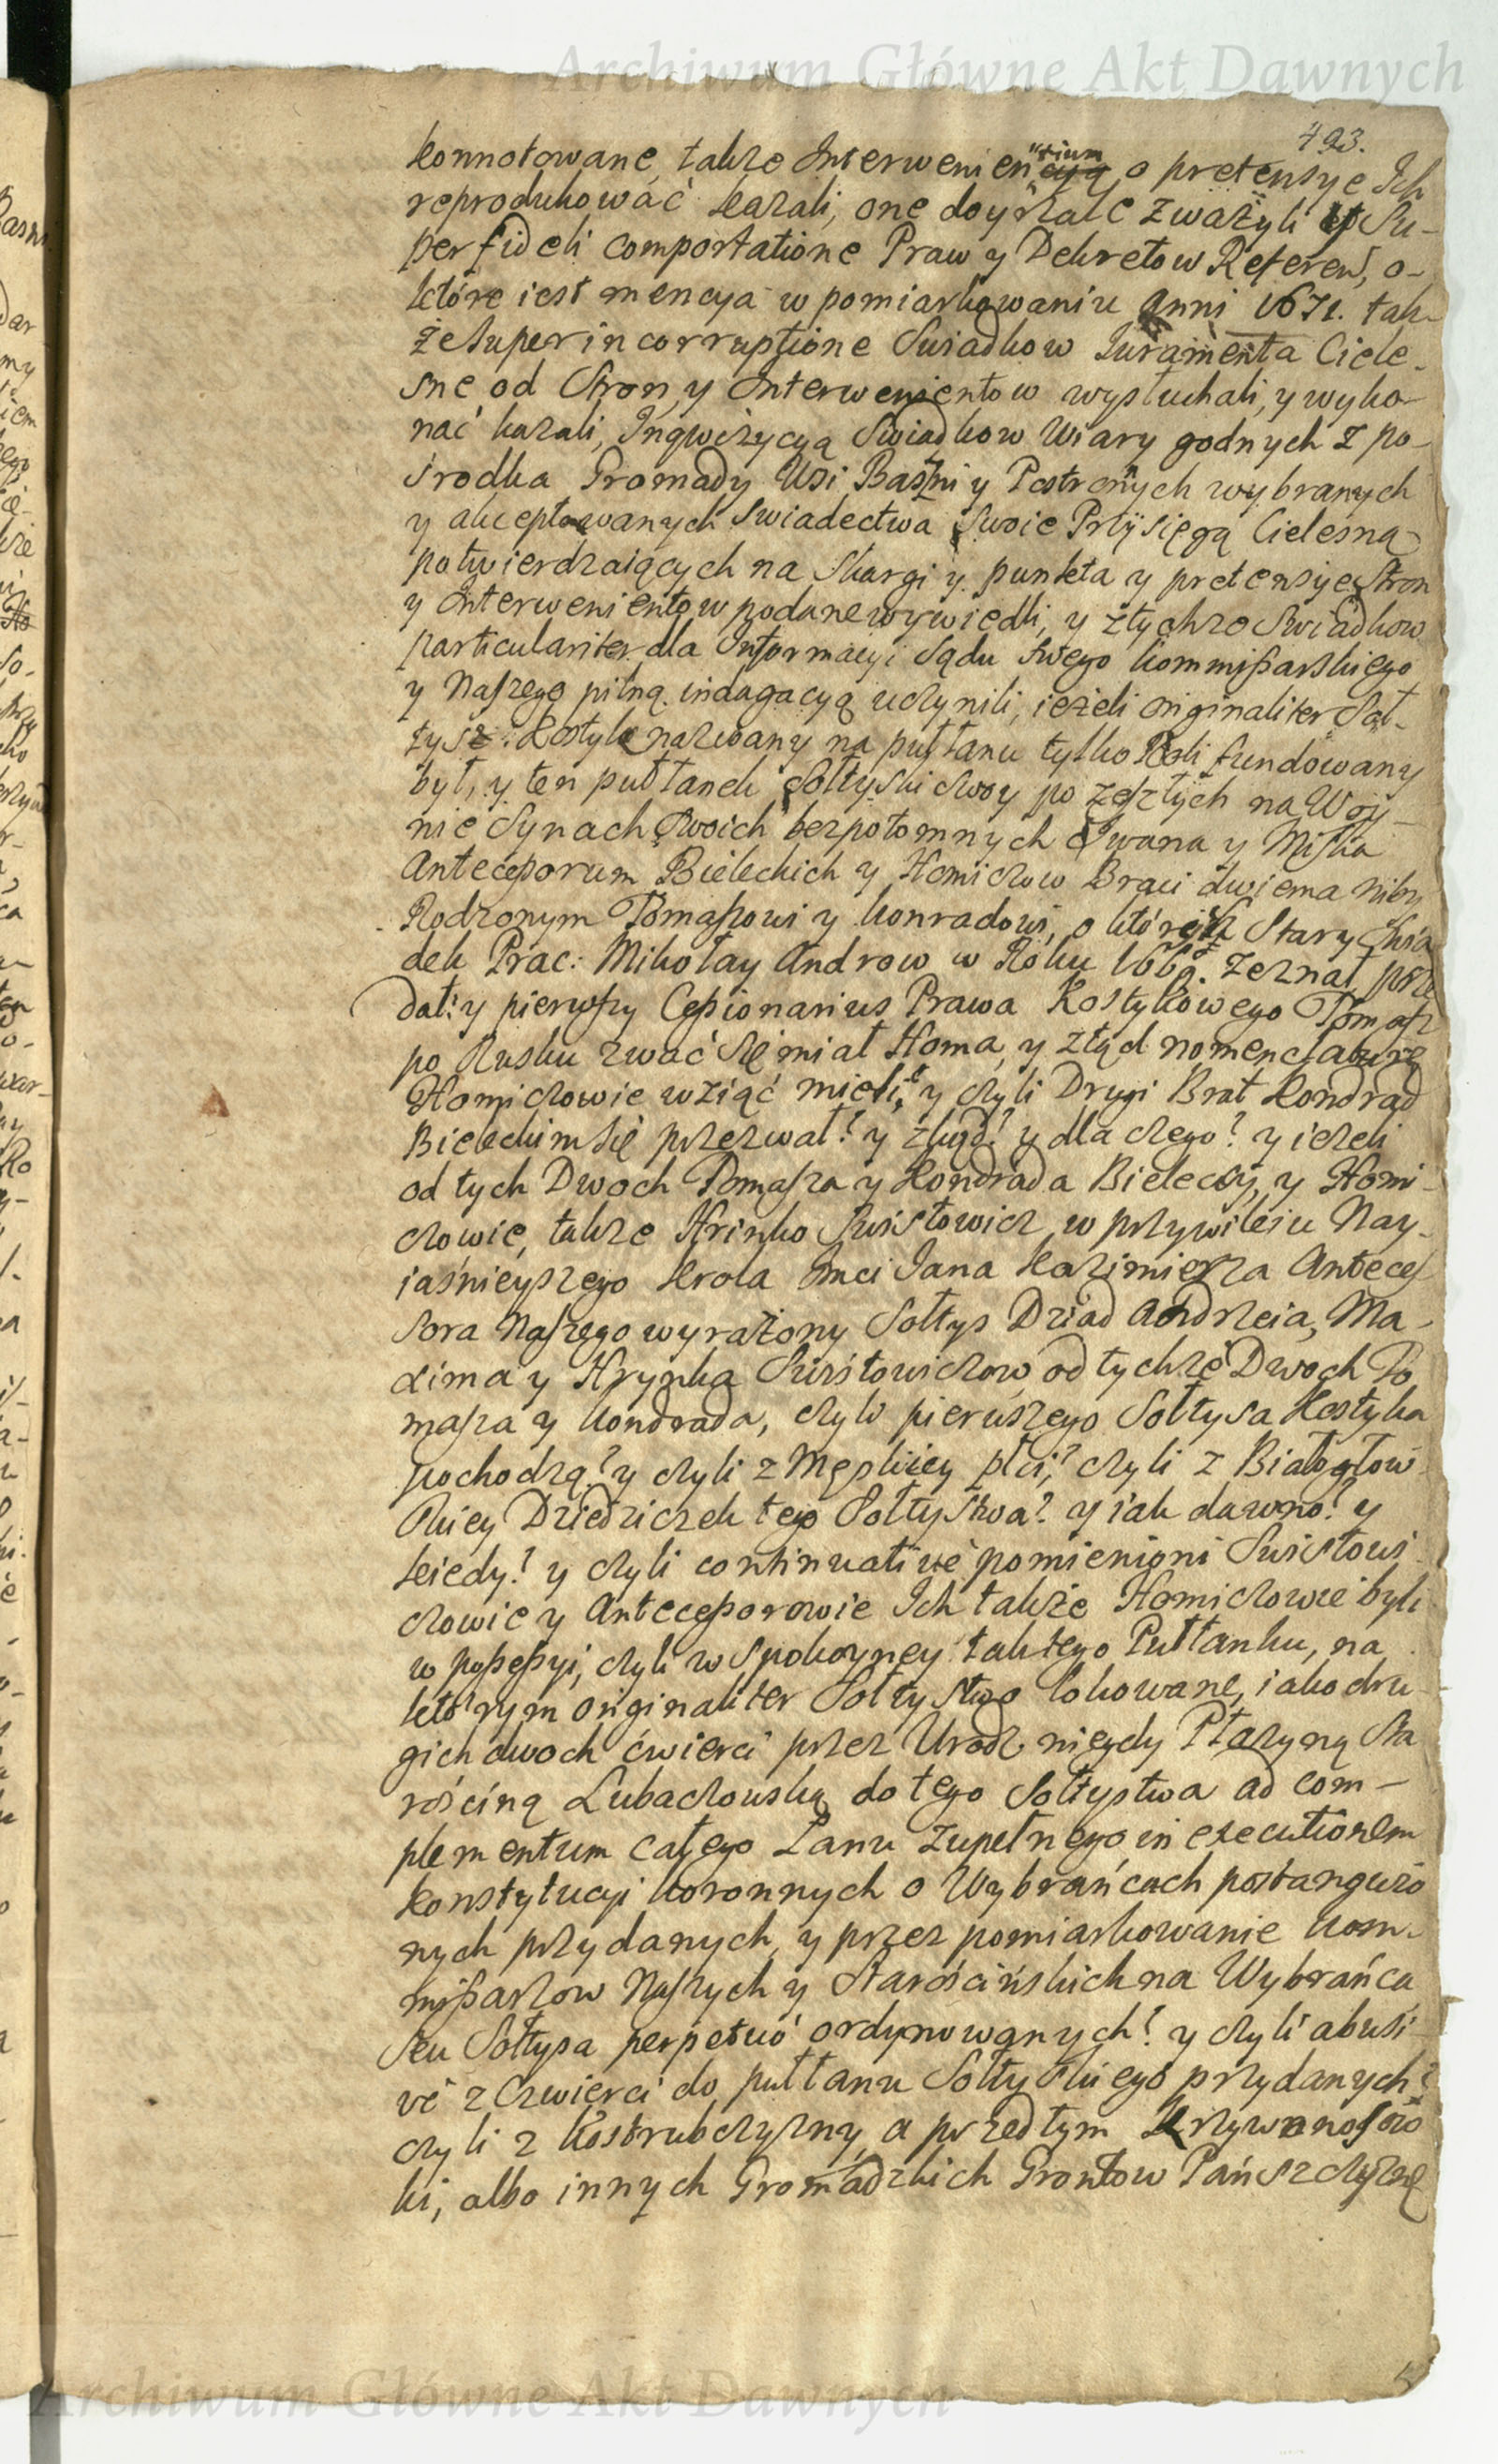 Archiwum Główne Akt Dawnych
493.
konnotowane, także Interwenien„tium o pretensye Ich
reprodukować kazali, one doyrzale zważyli y Su-
per fideli comportatione Praw y Dekretow Referen, o-
które iest mencya w pomiarkowaniu Anni 1671. tak-
że super incorruptione Swiadkow Juramenta Ciele-
sne od Stron, y Interwenientow wysłuchali, y wyko-
nać kazali, Inqwizycyą Swiadkow Wiary godnych z po-
srodka Gromady Wsi Baszni y Postronnych wybranych
y akceptowanych Swiadectwa Swoie Przysięgą Cielesną
potwierdzaiących na Skargi y punkta y pretensye Stron
y Interwenientow podane wywiedli, y z tychże Swiadkow
particulariter dla Informacyi Sądu Swego Kommißarskiego
y Naszego pilną indagacyą uczynili, ieżeli originaliter Soł-
tys Kostyk nazwany na pułłanu tylko Roli fundowany
był, y ten pułłanek Sołtyski Swoy po zeszłych na Woy-
nie Synach Swoich bezpotomnych Iwana y Miska
Anteceßorum Bieleckich y Homiczow Braci dwiema niby
Rodzonym Tomaszowi y Konradowi, o których Stary Swia
dek Prac: Mikołay Androw w Roku zeznał prze
dał: y pierwszy Ceßionarius Prawa Kostykowego Tomasz
po Rusku zwać się miał Homa, y ztąd nomenclaturę
Homiczowie wziąć mieli, y czyli Drugi Brat Kondrad
Bieleckim się przezwał? y zkąd? y dla czego? y ieżeli
od tych Dwoch Tomasza y Kondrada Bieleccy, y Homi-
czowie, także Hrinko Swistowicz w przywileiu Nay-
iaśnieyszego Krola Jmci Jana Kazimierza Anteces-
sora Naszego wyrażony Sołtys Dziad Andrzeia, Ma-
xima y Hrynka Swistowiczow od tychże Dwoch To
masza y Kondrada, czyli pierwszego Sołtysa Kostyka
pochodzą? y czyli z Męskiey płci,? czyli z Białogłow-
skiey Dziedziczek tego Sołtystwa? y iak dawno? y
kiedy? y czyli continuativè pomienioni Swistowi-
czowie y Anteceßorowie Ich także Homiczowie byli
w poßeßyi, czyli w Spokoyney takżego Pułłanku, na
którym originaliter Sołtystwo lokowane, iako dru-
gich dwoch ćwierci przez Urodz. niegdy Płazyną Sta
rościną Lubaczowską do tego Sołtystwa ad com-
plementum całego Łanu zupełnego in executionem
Konstytucyi Koronnych o Wybrańcach postanowio
nych przydanych, y przez pomiarkowanie Kom-
mißarzow Naszych y Starościńskich na Wybrańca
Seu Sołtysa perpetuò ordynowanych? y czyli abusi-
vè z Czwierci do pułłanu Sołtyskiego przydanych?
czyli z Kostrubczyzny, a przedtym Krzywonosow
ki, albo innych Gromadzkich Grontow Pańszczyznę
Archiwum Główne Akt Dawnych